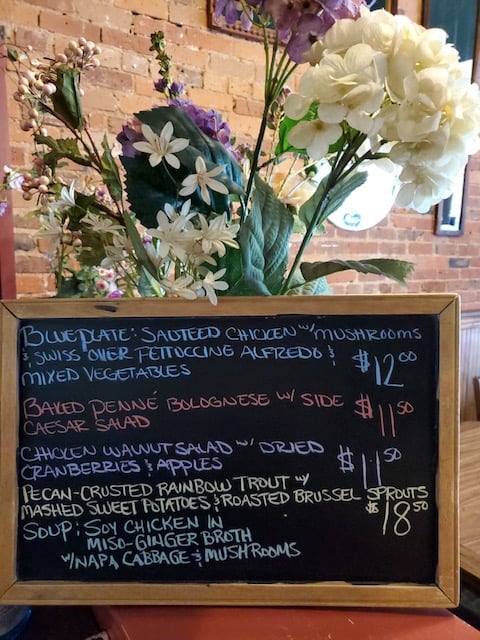 BLUEPLATE: SAUTEED CHICKEN W/ MUSHROOMS
& SWISS OVER FETTUCCINE ALFREDO &
MIXED VEGETABLES
$12.00
BAKED PENNÉ BOLOGNESE W/ SIDE
CAESAR SALAD
$11.50
CHICKEN WALNUT SALAD W/ DRIED
CRANBERRIES & APPLES
$11.50
PECAN-CRUSTED RAINBOW TROUT W/
MASHED SWEET POTATOES & ROASTED BRUSSEL SPROUTS
$18.50
SOUP: SOY CHICKEN IN
MISO-GINGER BROTH
W/NAPA CABBAGE & MUSHROOMS